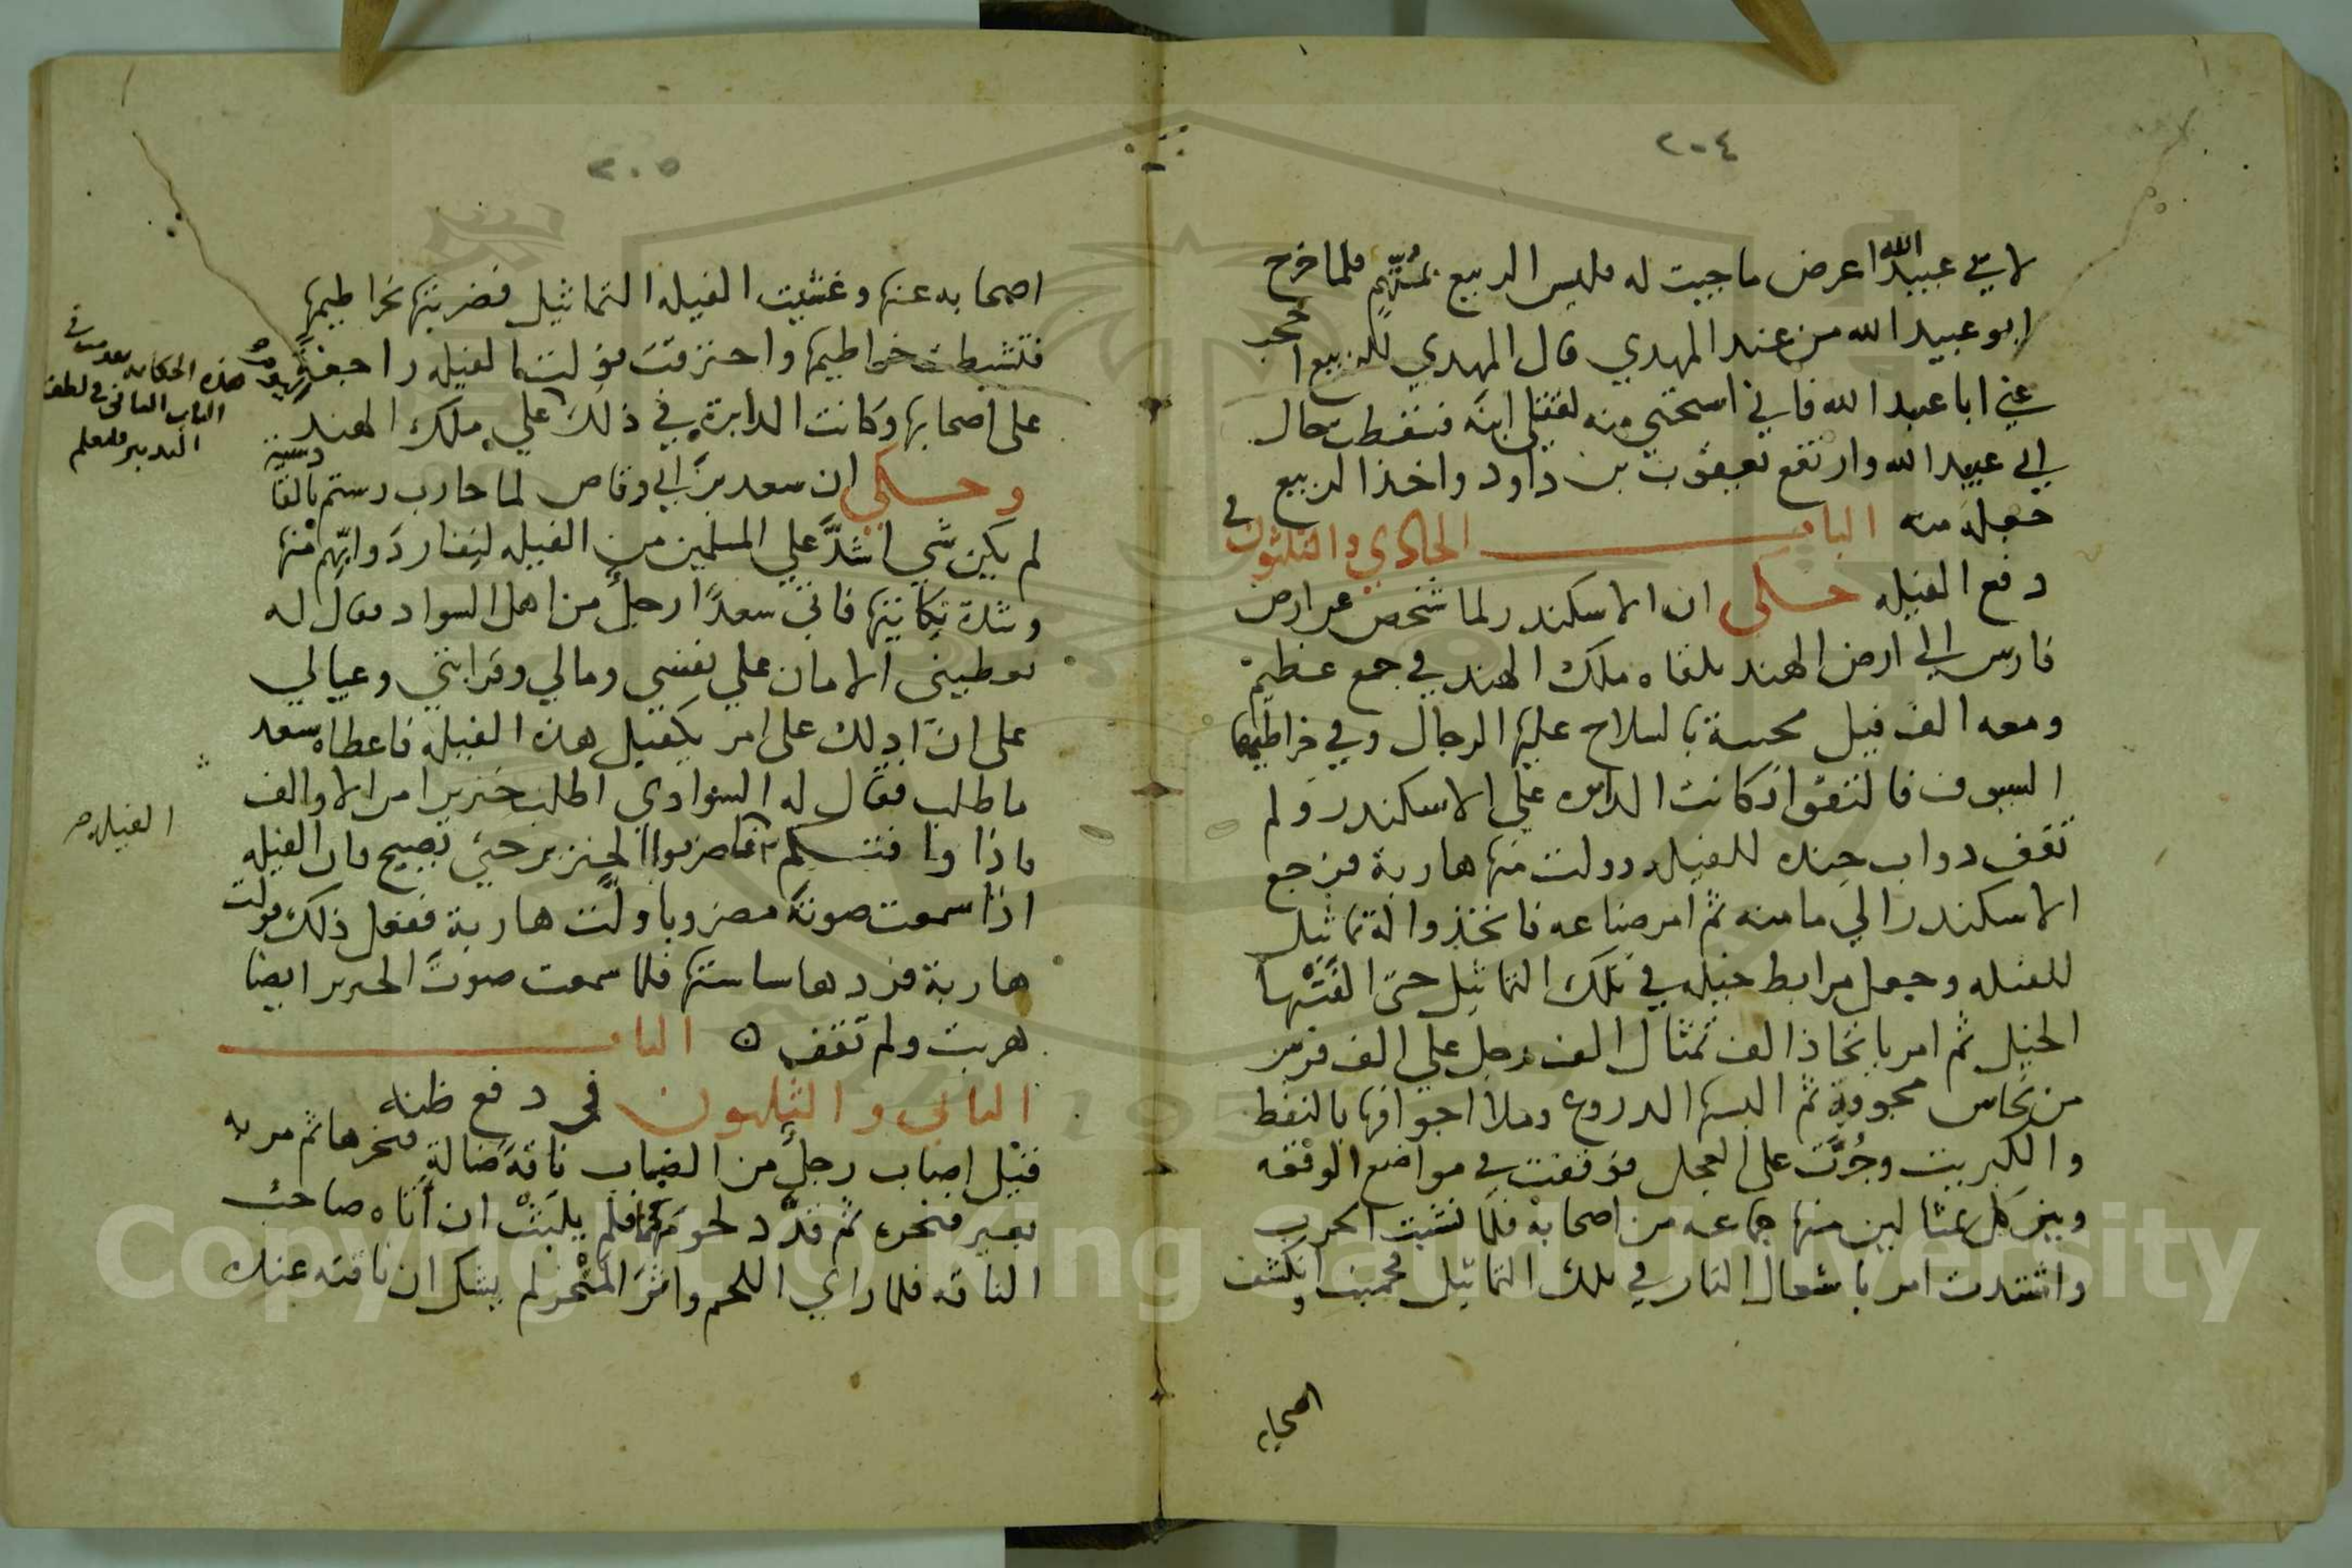 ٢٠٤
لابي عبيد الله اعرض ما جيت له فليس الربيع بمتهم فلما خرج
ابو عبيد الله من عند المهدي قال المهدي للربيع احجب
عني ابا عبيد الله فاني استحيي منه لقتل ابنه فسقطت حال
ابي عبيد الله وارتفع يعقوب بن داود واخذ الربيع
جعله منه الباب الحادي والثلثون في
دفع الفيله حكى ان الاسكندر لما شخص عن ارض
فارس الى ارض الهند تلقاه ملك الهند في جمع عظيم
ومعه الف فيل محببة بالسلاح عليها الرجال وفي خراطيمها
السيوف فالتقوا فكانت الدايره علي الاسكندر ولم
تقف دواب جنده للفيله وولت منها هاربة فرجع
الاسكندر الي مامنه ثم امر صناعه فاتخذوا له تماثيل
للفيله وجعل مرابط خيله في تلك التماثيل حتى الفتها
الخيل ثم امر باتخاذ الف تمثال الف رجل علي الف فرس
من نحاس مجوفة ثم البسها الدروع وملا اجوافها بالنفط
والكبريت وجرت على العجل فوقفت في مواضع الوقفه
وبين كل تمثالين منها جماعه من اصحابه فلما نشبت الحرب
واشتدت امر باشعال النار في تلك التماثيل فحميت وانكشف
اصحابه
٢٠٥
اصحابه عنها وغشيت الفيله التماثيل فضربتها بخراطيمها
فتشبطت خراطيمها واحترقت فولت الفيله راجعة
على اصحابها وكانت الدايرة في ذلك علي ملك الهند
وحكي ان سعد بن ابي وقاص لما حارب رستم بالقادسية
لم يكن شي اشد علي المسلمين من الفيله لنفار دوابهم منها
وشدة نكايتها فاتى سعدا رجل من اهل السواد فقال له
تعطيني الامان علي نفسي ومالي وقرابتي وعيالي
على ان ادلك على امر يكفيك هذه الفيله فاعطاه سعد
ما طلب فقال له السوادي اطلب خنزيرا من الاوالف
فاضربوا الخنزير حتي يصيح فان الفيله
اذا سمعت صوته مضروبا ولت هاربة ففعل ذلك فولت
هاربة فردها ساستها فلما سمعت صوت الخنزير ايضا
هربت ولم تقف ه الباب
الثاني والثلثون في دفع ظنه
قيل اصاب رجل من الضباب ناقة ضالة فنحرها ثم مر به
بعير فنحره ثم قدد لحومهما فلم يلبث ان اتاه صاحب
الناقه فلما راي اللحم واثر المنحر لم يشك ان ناقته عنده
هذه الحكايه
الباب الثاني في لطف
التدبير فليعلم
الفيله صح
Copyright © King Saud University